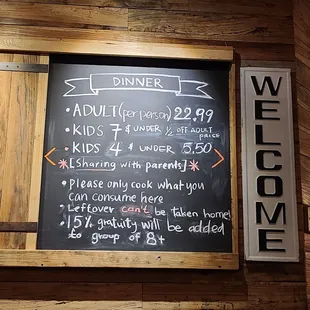 DINNER
• ADULT (per person) 22.99
• KIDS 7 & UNDER 1/2 OFF ADULT PRICE
• KIDS 4 & UNDER 5.50
* [Sharing with parents] *
• Please only cook what you
can consume here
• Leftover can't be taken home!
• 15% gratuity will be added
to group of 8+
WELCOME